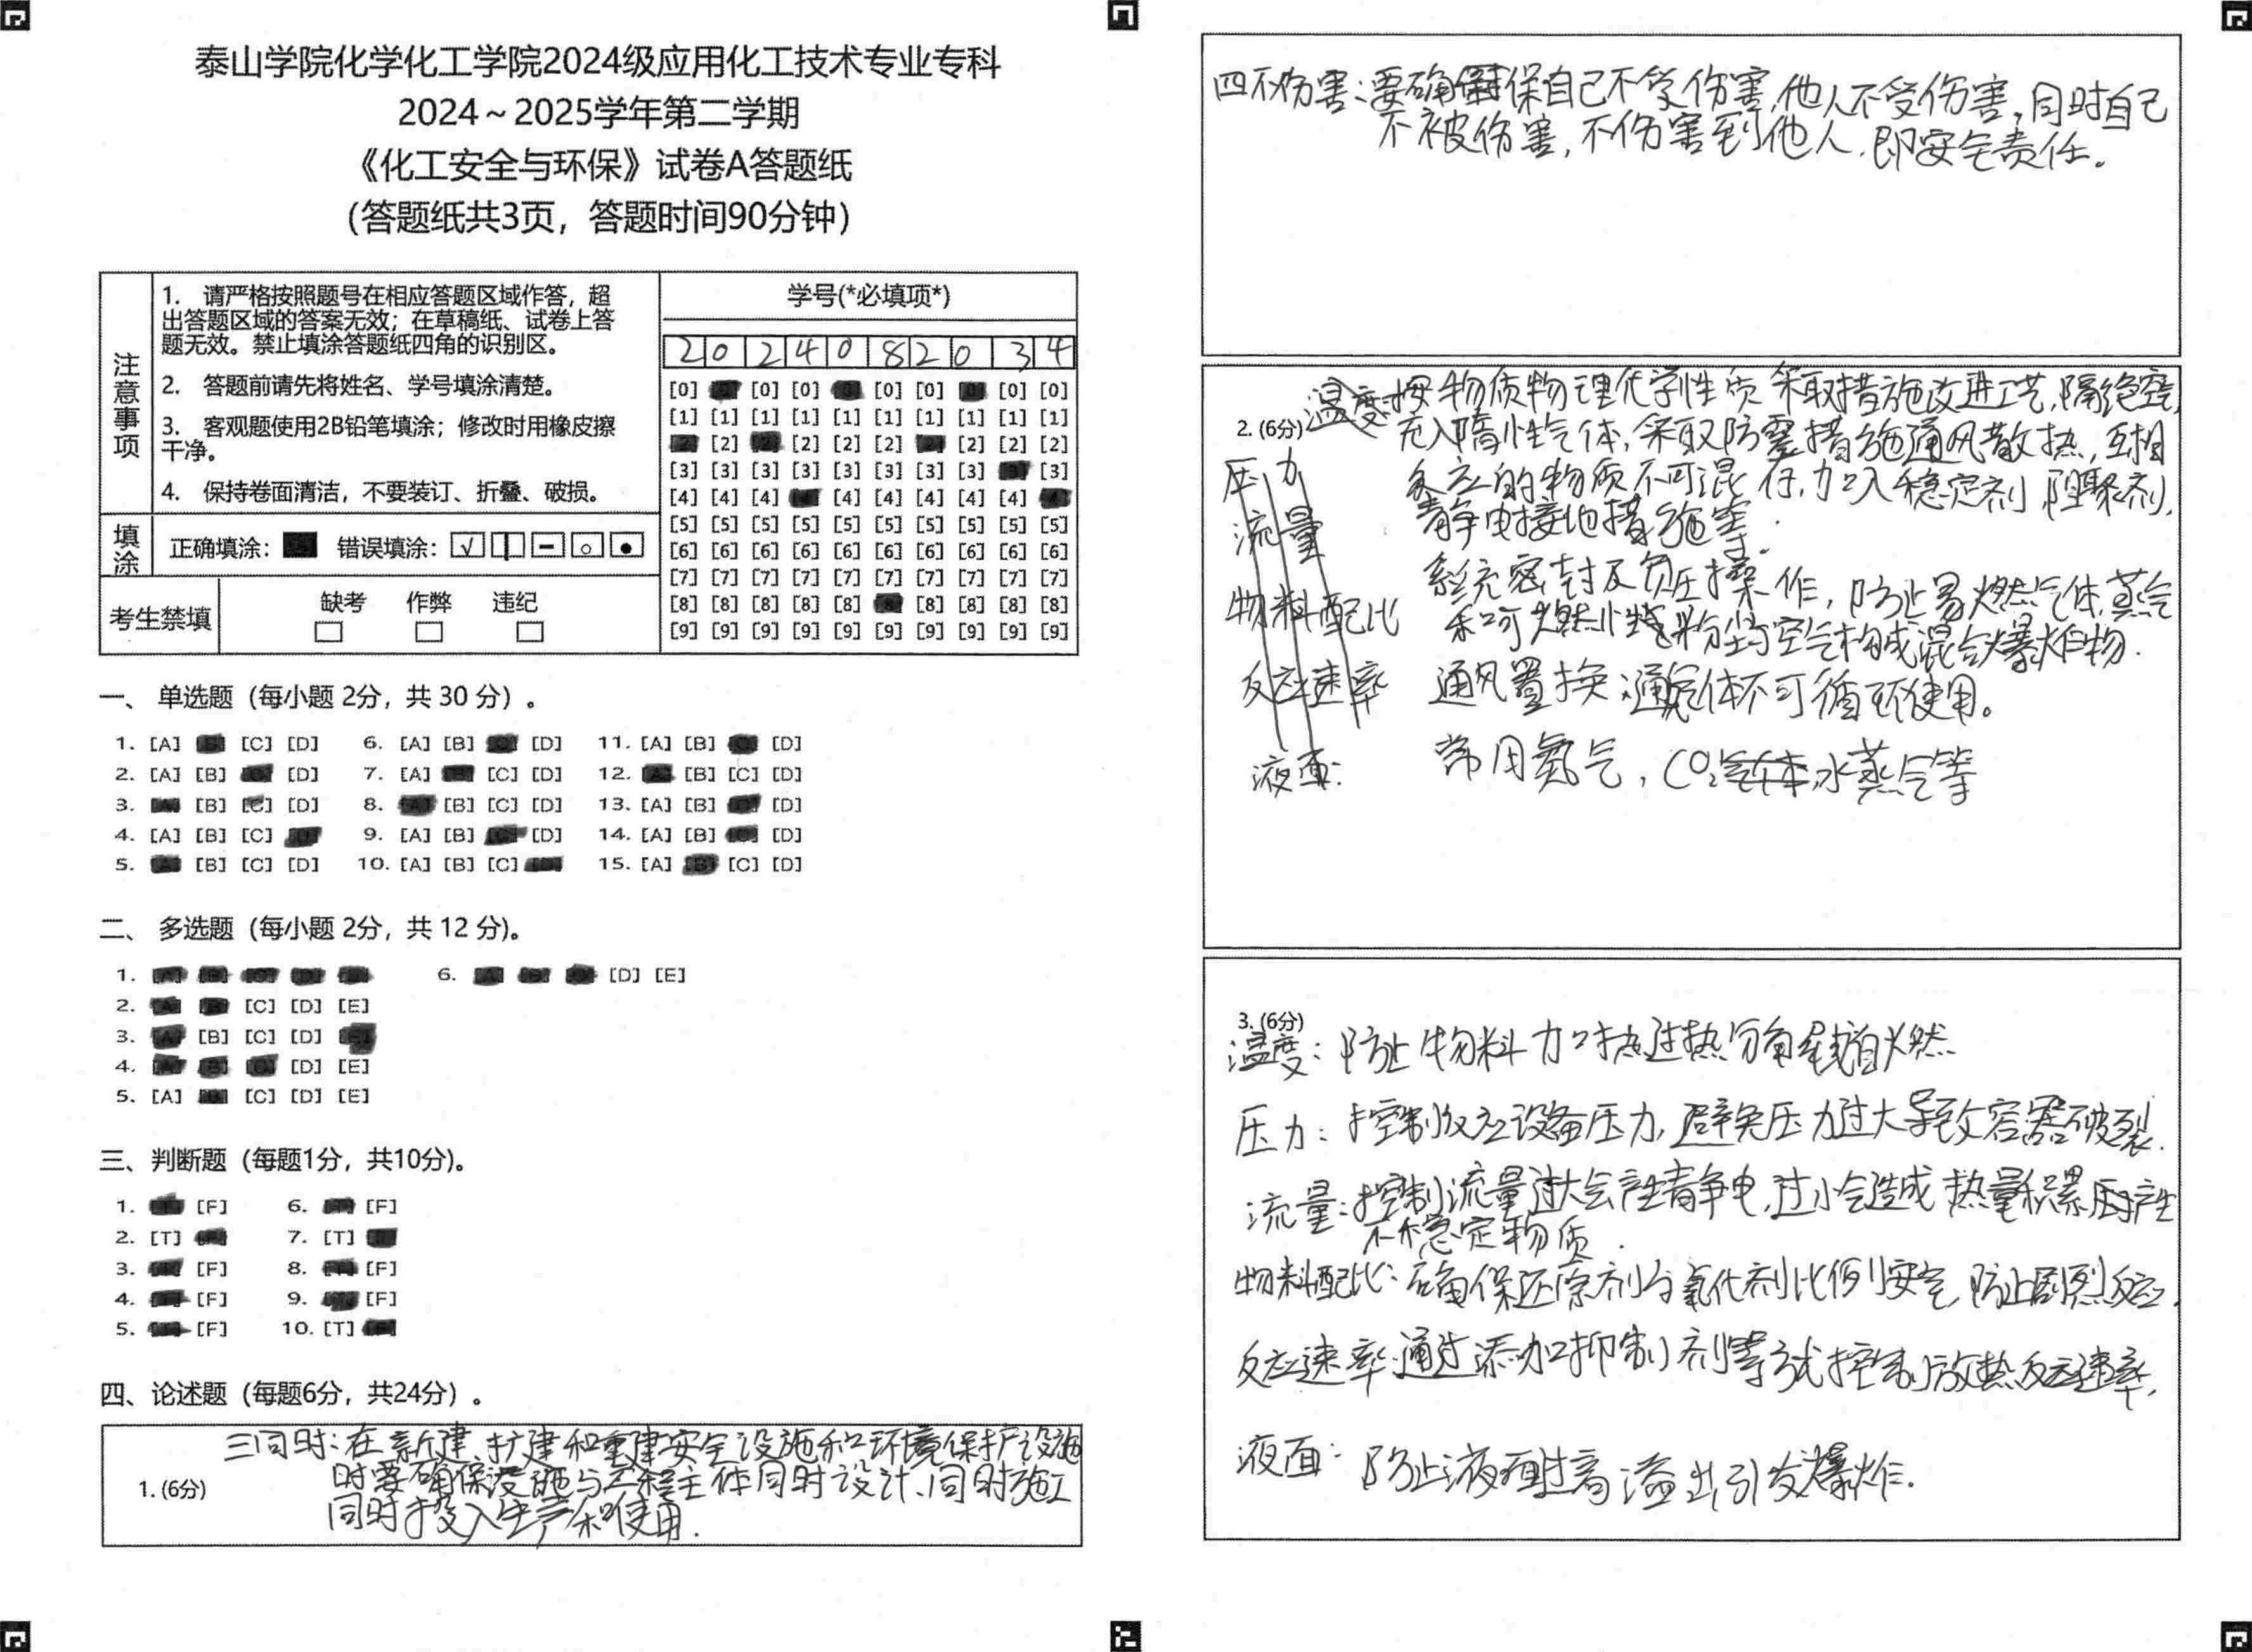 泰山学院化学化工学院2024级应用化工技术专业专科
2024～2025学年第二学期
《化工安全与环保》试卷A答题纸
（答题纸共3页，答题时间90分钟）
注意事项
1. 请严格按照题号在相应答题区域作答，超
出答题区域的答案无效；在草稿纸、试卷上答
题无效。禁止填涂答题纸四角的识别区。
2. 答题前请先将姓名、学号填涂清楚。
3. 客观题使用2B铅笔填涂；修改时用橡皮擦
干净。
4. 保持卷面清洁，不要装订、折叠、破损。
填涂
正确填涂： 错误填涂：
考生禁填
缺考 作弊 违纪
学号(*必填项*)
2 0 2 4 0 8 2 0 3 4
[0] [0] [0] [0] [0] [0] [0]
[1] [1] [1] [1] [1] [1] [1] [1] [1] [1]
[2] [2] [2] [2] [2] [2] [2]
[3] [3] [3] [3] [3] [3] [3] [3] [3]
[4] [4] [4] [4] [4] [4] [4] [4]
[5] [5] [5] [5] [5] [5] [5] [5] [5] [5]
[6] [6] [6] [6] [6] [6] [6] [6] [6] [6]
[7] [7] [7] [7] [7] [7] [7] [7] [7] [7]
[8] [8] [8] [8] [8] [8] [8] [8] [8]
[9] [9] [9] [9] [9] [9] [9] [9] [9] [9]
一、 单选题（每小题 2分，共 30 分）。
1. [A] [C] [D] 6. [A] [B] [D] 11. [A] [B] [D]
2. [A] [B] [D] 7. [A] [C] [D] 12. [B] [C] [D]
3. [B] [C] [D] 8. [B] [C] [D] 13. [A] [B] [D]
4. [A] [B] [C] 9. [A] [B] [D] 14. [A] [B] [D]
5. [B] [C] [D] 10. [A] [B] [C] 15. [A] [C] [D]
二、 多选题（每小题 2分，共 12 分)。
1. 6. [D] [E]
2. [C] [D] [E]
3. [B] [C] [D]
4. [D] [E]
5. [A] [C] [D] [E]
三、判断题（每题1分，共10分)。
1. [F] 6. [F]
2. [T] 7. [T]
3. [F] 8. [F]
4. [F] 9. [F]
5. [F] 10. [T]
四、论述题（每题6分，共24分）。
1. (6分)
三同时：在新建、扩建和重建安全设施和环境保护设施
时要确保设施与工程主体同时设计、同时施工
同时投入生产和使用.
四不伤害：要确保自己不受伤害，他人不受伤害，同时自己
不被伤害，不伤害到他人，即安全责任。
2. (6分)
温度 按物质物理化学性质采取措施改进工艺，隔绝空气
充入惰性气体，采取防震措施通风散热，互相
压力 反应的物质不可混存，加入稳定剂 阻聚剂，
流量 静电接地措施等.
系统密封及负压操作，防止易燃气体、蒸气
物料配比 和可燃性粉尘与空气构成混合爆炸物.
反应速率 通风置换：通气体不可循环使用。
液面： 常用氮气，CO₂ 水蒸气等
3. (6分)
温度：防止物料加热过热分解或自燃
压力：控制反应设备压力，避免压力过大导致容器破裂.
流量：控制流量过大会产生静电，过小会造成热量积累 产生
不稳定物质.
物料配比：确保还原剂与氧化剂比例安全，防止剧烈反应.
反应速率：通过添加抑制剂等方式控制放热反应速率，
液面：防止液面过高溢出引发爆炸.